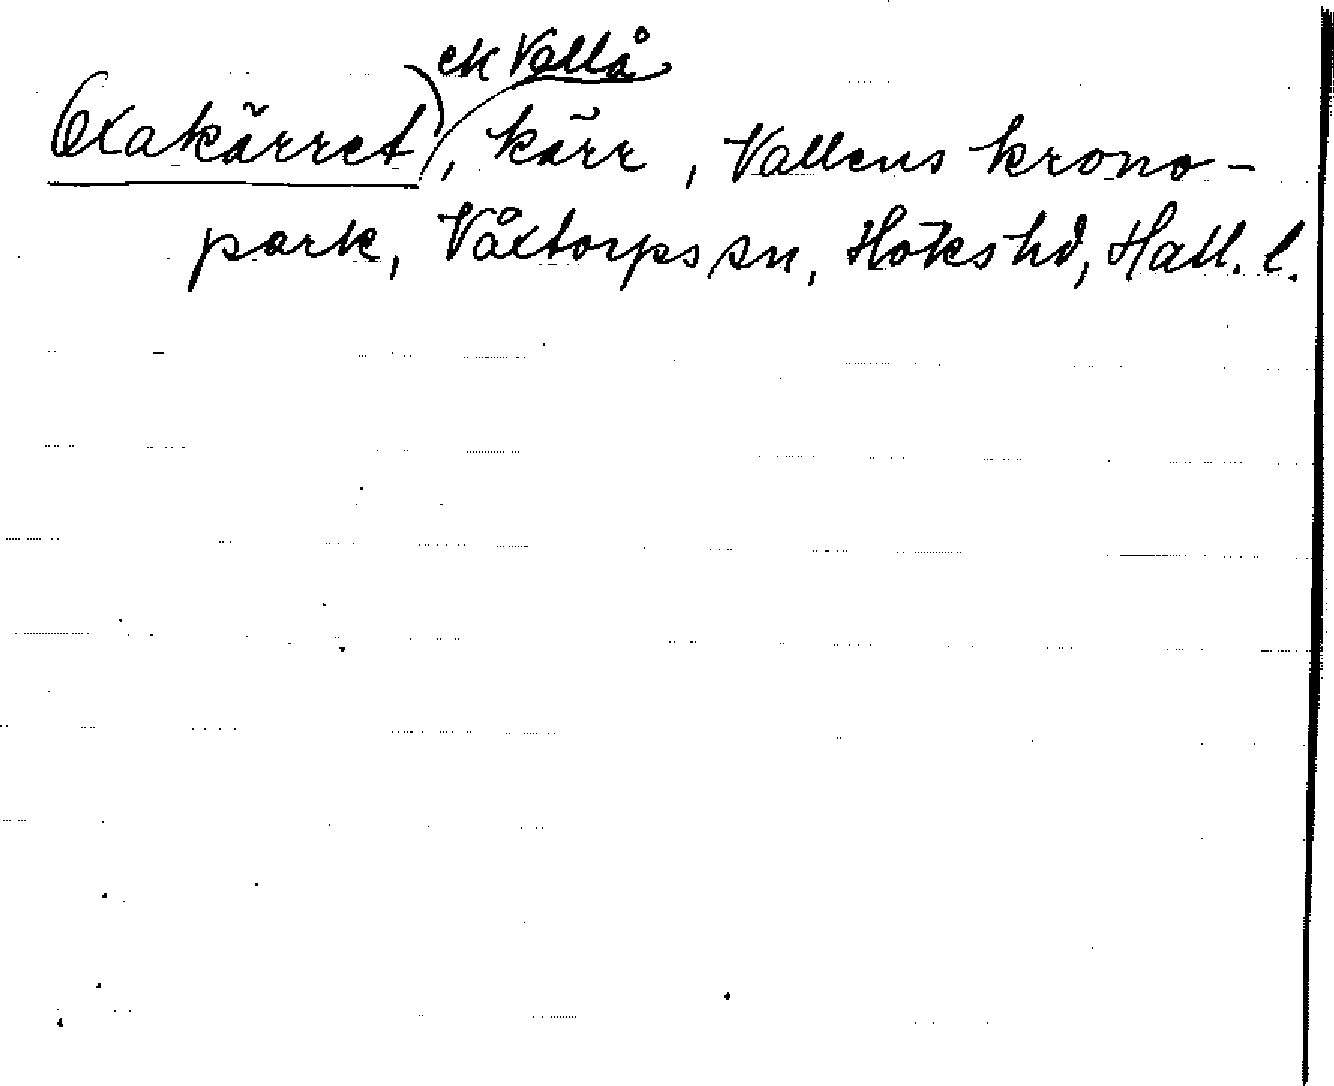 ek Vallå
Oxakärret, kärr, Vallens krono-
park, Våxtorps sn, Höks hd, Hall. l.